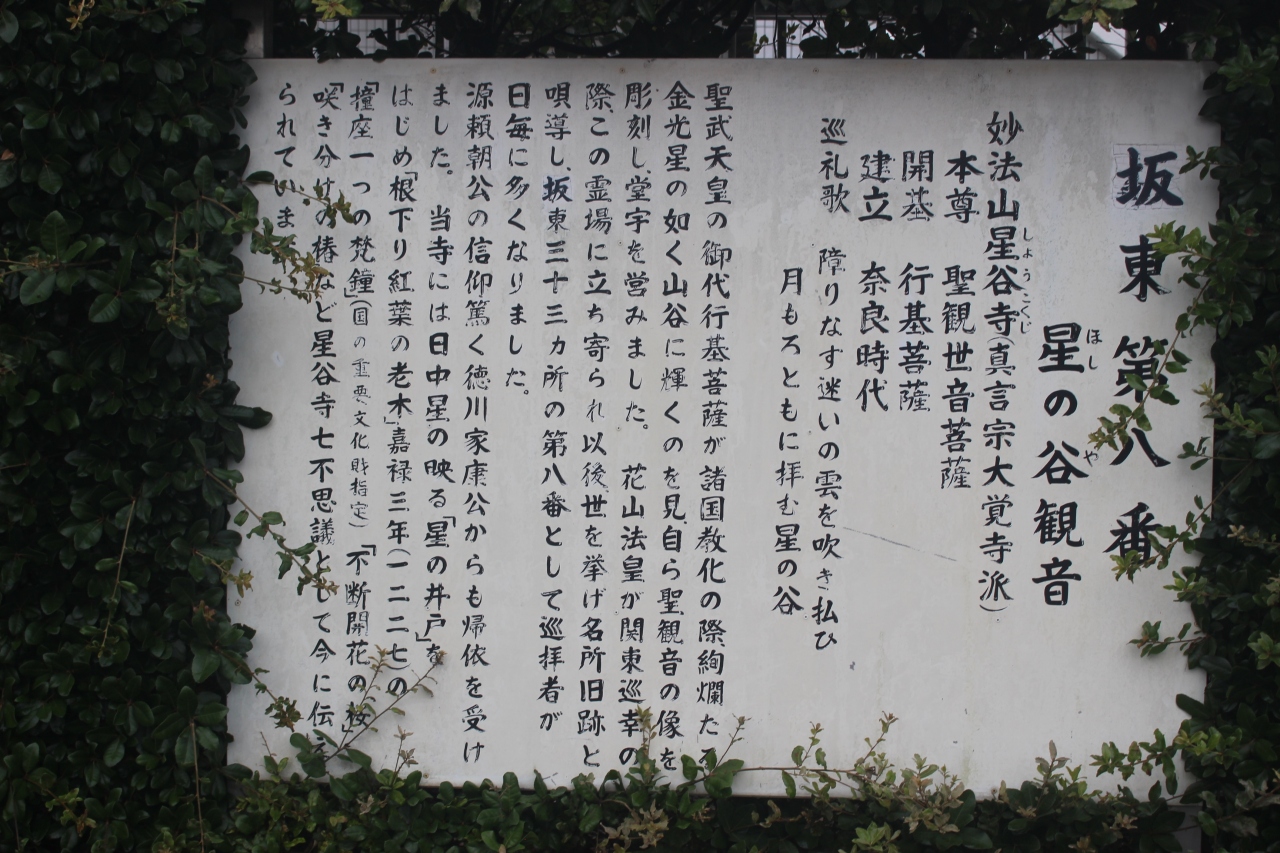 坂東第八番
星の谷観音
ほし や
妙法山星谷寺(真言宗大覚寺派)
しょうこくじ
本尊 聖観世音菩薩
開基 行基菩薩
建立 奈良時代
巡礼歌 障りなす迷いの雲を吹き払ひ
月もろともに拝む星の谷
聖武天皇の御代行基菩薩が諸国教化の際絢爛たる
金光星の如く山谷に輝くのを見自ら聖観音の像を
彫刻し、堂宇を営みました。 花山法皇が関東巡幸の
際、この霊場に立ち寄られ以後世を挙げ名所旧跡と
唄導し、坂東三十三カ所の第八番として巡拝者が
日毎に多くなりました。
源頼朝公の信仰篤く徳川家康公からも帰依を受け
ました。 当寺には日中星の映る「星の井戸」を
はじめ「根下り紅葉の老木」嘉禄三年(一二二七)の
「撞座一つの梵鐘」(国の重要文化財指定)「不断開花の桜」
「咲き分けの椿など星谷寺七不思議として今に伝え
られていま